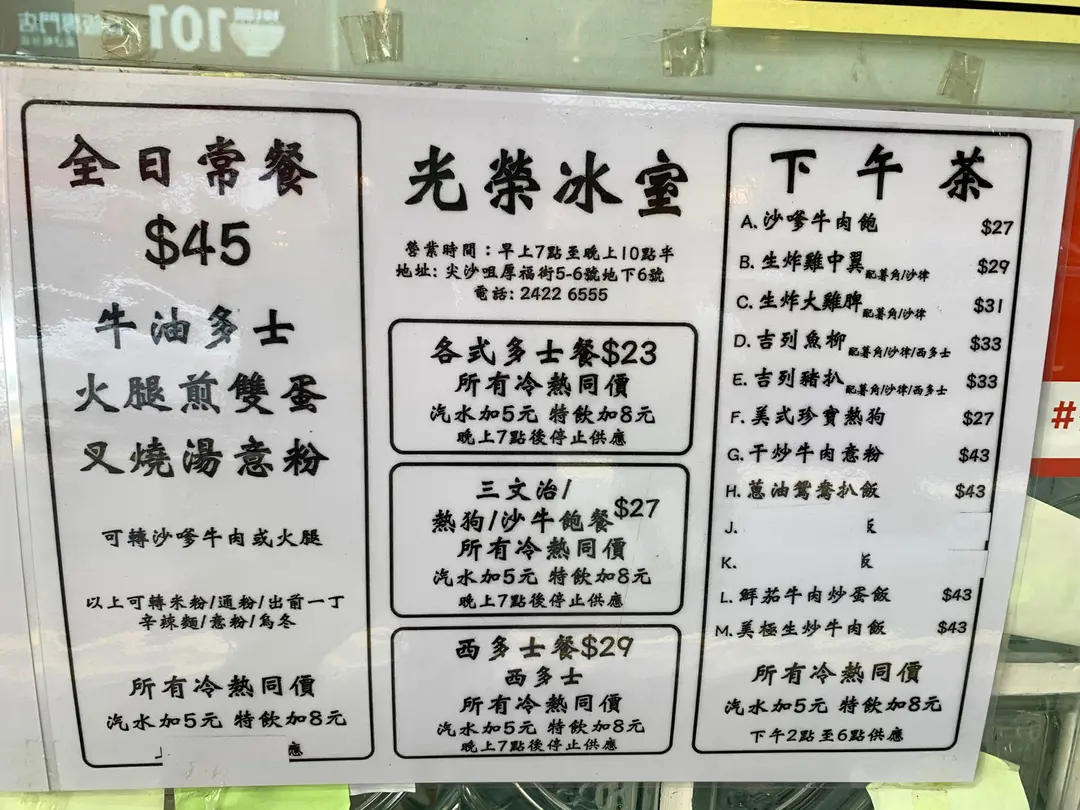 101
全日常餐
$45
牛油多士
火腿煎雙蛋
叉燒湯意粉
可轉沙嗲牛肉或火腿
以上可轉米粉/通粉/出前一丁
辛辣麵/意粉/烏冬
所有冷熱同價
汽水加5元 特飲加8元
應
光榮冰室
營業時間：早上7點至晚上10點半
地址: 尖沙咀厚福街5-6號地下6號
電話: 2422 6555
各式多士餐$23
所有冷熱同價
汽水加5元 特飲加8元
晚上7點後停止供應
三文治/
熱狗/沙牛飽餐$27
所有冷熱同價
汽水加5元 特飲加8元
晚上7點後停止供應
西多士餐$29
西多士
所有冷熱同價
汽水加5元 特飲加8元
晚上7點後停止供應
下午茶
A. 沙嗲牛肉飽 $27
B. 生炸雞中翼配薯角/沙律 $29
C. 生炸大雞髀配薯角/沙律 $31
D. 吉列魚柳配薯角/沙律/西多士 $33
E. 吉列豬扒配薯角/沙律/西多士 $33
F. 美式珍寶熱狗 $27
G. 干炒牛肉意粉 $43
H. 蔥油鴛鴦扒飯 $43
J.
K.
L. 鮮茄牛肉炒蛋飯 $43
M. 美極生炒牛肉飯 $43
所有冷熱同價
汽水加5元 特飲加8元
下午2點至6點供應
#